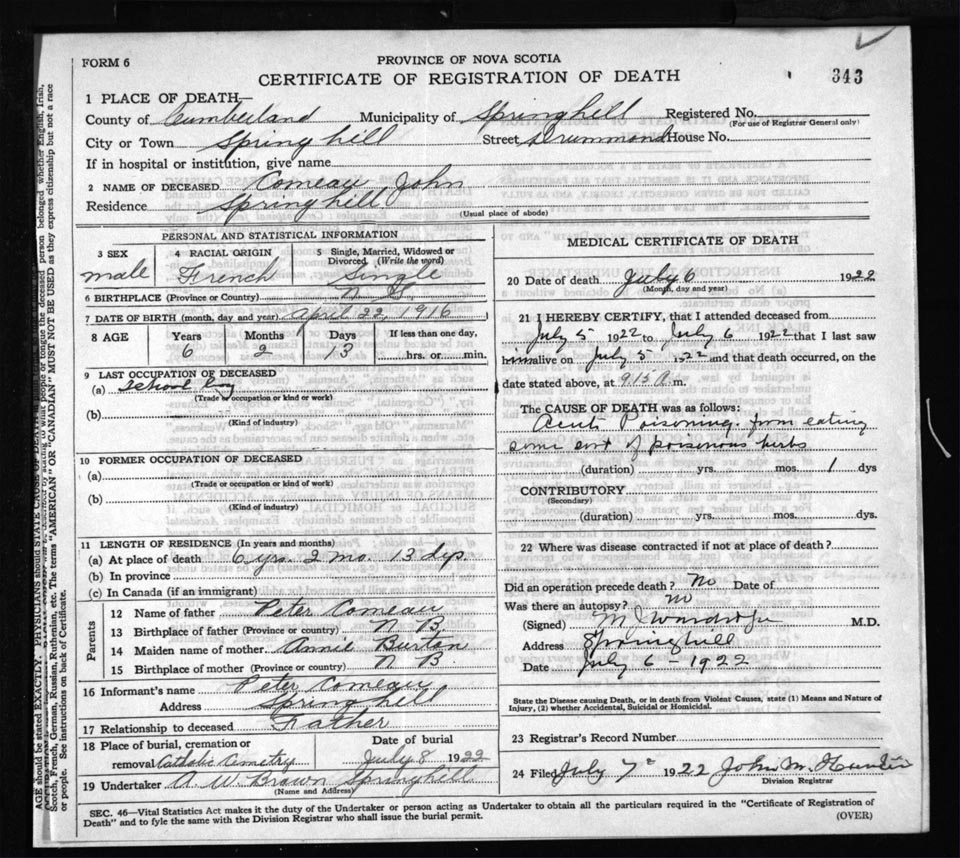 FORM 6
PROVINCE OF NOVA SCOTIA
CERTIFICATE OF REGISTRATION OF DEATH
343
1 PLACE OF DEATH—
County of Cumberland Municipality of Springhill Registered No.
(For use of Registrar General only)
City or Town Spring hill Street Drummond House No.
If in hospital or institution, give name
2 NAME OF DECEASED Comeau, John
Residence Springhill
(Usual place of abode)
PERSONAL AND STATISTICAL INFORMATION
3 SEX 4 RACIAL ORIGIN 5 Single, Married, Widowed or Divorced (Write the word)
male French Single
6 BIRTHPLACE (Province or Country) N. S.
7 DATE OF BIRTH (month, day and year) April 22, 1916
8 AGE Years Months Days If less than one day,
6 2 13 hrs. or min.
9 LAST OCCUPATION OF DECEASED
(a) School boy
(Trade or occupation or kind or work)
(b)
(Kind of industry)
10 FORMER OCCUPATION OF DECEASED
(a)
(Trade or occupation or kind or work)
(b)
(Kind of industry)
11 LENGTH OF RESIDENCE (In years and months)
(a) At place of death 6 yrs. 2 mo. 13 dys.
(b) In province
(c) In Canada (if an immigrant)
Parents
12 Name of father Peter Comeau
13 Birthplace of father (Province or country) N B.
14 Maiden name of mother Annie Burton
15 Birthplace of mother (Province or country) N B.
16 Informant's name Peter Comeau
Address Springhill
17 Relationship to deceased Father
18 Place of burial, cremation or Date of burial
removal Catholic Cemetry July 8 1922
19 Undertaker A. W. Brown Springhill
(Name and Address)
MEDICAL CERTIFICATE OF DEATH
20 Date of death July 6 1922
(Month, day and year)
21 I HEREBY CERTIFY, that I attended deceased from
July 5 1922 to July 6 1922 that I last saw
him alive on July 5 1922 and that death occurred, on the
date stated above, at 9.15 A. m.
The CAUSE OF DEATH was as follows:
Acute Poisoning from eating
some sort of poisonous herbs
(duration) yrs. mos. 1 dys
CONTRIBUTORY
(Secondary)
(duration) yrs. mos. dys.
22 Where was disease contracted if not at place of death?
Did an operation precede death? No Date of
Was there an autopsy? No
(Signed) M.D.
Address Springhill
Date July 6 - 1922
State the Disease causing Death, or in death from Violent Causes, state (1) Means and Nature of
Injury, (2) whether Accidental, Suicidal or Homicidal.
23 Registrar's Record Number
24 Filed July 7 1922 John M.
Division Registrar
SEC. 46—Vital Statistics Act makes it the duty of the Undertaker or person acting as Undertaker to obtain all the particulars required in the "Certificate of Registration of
Death" and to fyle the same with the Division Registrar who shall issue the burial permit.
(OVER)
AGE should be stated EXACTLY. PHYSICIANS should STATE CAUSE OF DEATH
stating to what people or tongue the deceased person belonged whether English, Irish,
Scotch, French, German, Russian, Ruthenian, etc. The terms "AMERICAN" OR "CANADIAN" MUST NOT BE USED as they express citizenship but not a race
or people. See instructions on back of Certificate.